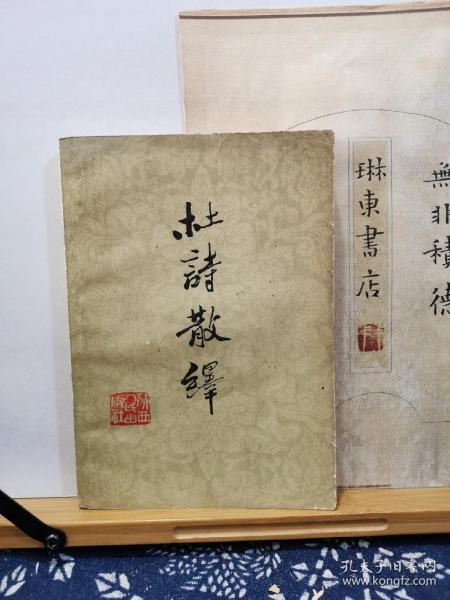 杜詩散繹
陕西
人民出
版社
琳東書店
無非積德
孔夫子旧书网
www.kongfz.com